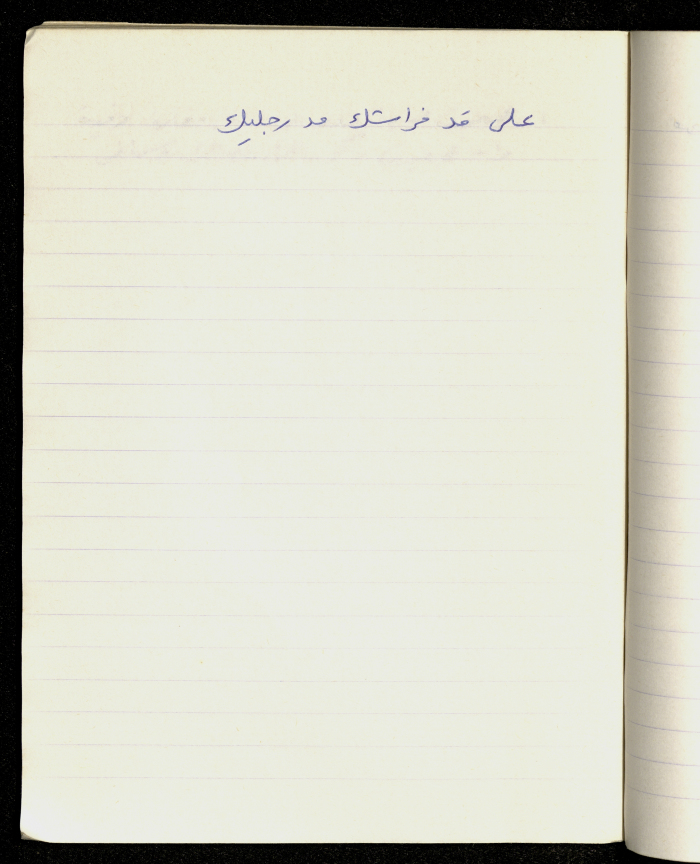 على قد فراشك مد رجليك